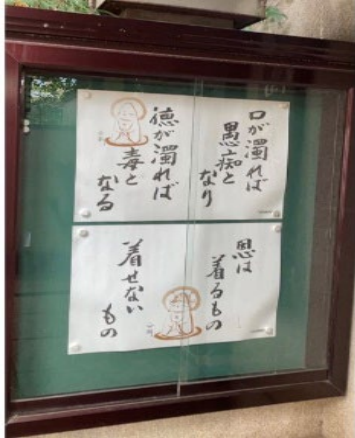 口が濁れば
愚痴と
なり
徳が濁れば
毒と
なる
恩は
着るもの
着せない
もの